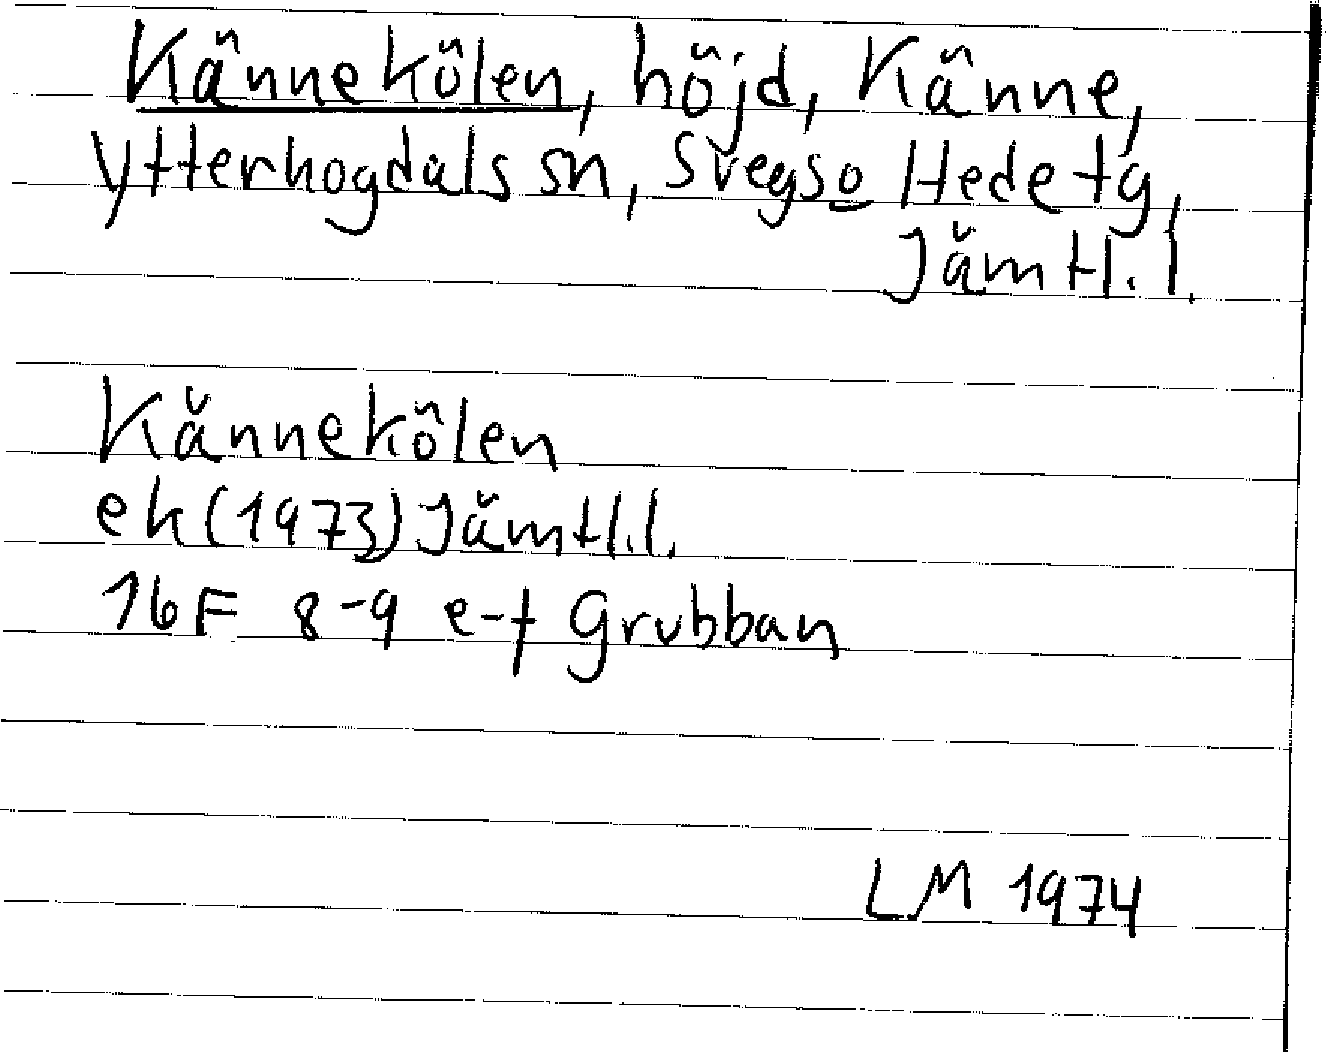 Kännekölen, höjd, Känne,
Ytterhogdals sn, Svegs o Hede tg,
Jämtl. l.
Kännekölen
ek (1973) Jämtl. l.
16F 8-9 e-f Grubban
LM 1974